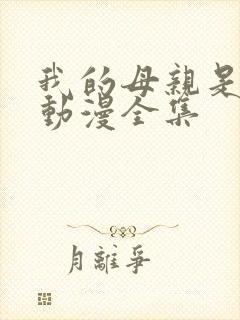 我的母親是
動漫全集
月離爭